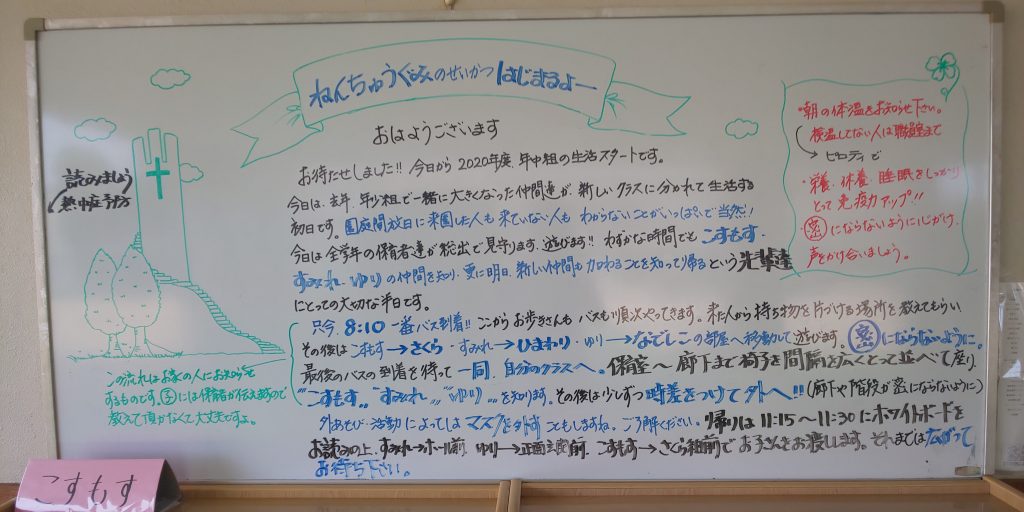 ねんちゅうぐみのせいかつ はじまるよー
おはようございます
お待たせしました!! 今日から2020年度 年中組の生活スタートです。
今日は、去年、年少組で一緒に大きくなった仲間達が、新しいクラスに分かれて生活する
初日です。園庭開放日に来園した人も来ていない人も わからないことがいっぱいで当然!
今日は全学年の保育者達が総出で見守ります、遊びます!! わずかな時間でも こすもす、
すみれ、ゆりの仲間を知り、更に明日、新しい仲間も加わることを知って帰るという先輩達
にとっての大切な半日です。
只今、8:10 一番バス到着!! ここからお歩きさんも バスも順次やってきます。来た人から持ち物を片づける場所を教えてもらい
その後は こすもす→さくら・すみれ→ひまわり・ゆり→なでしこの部屋へ移動して遊びます。密にならないように。
最後のバスの到着を待って一同、自分のクラスへ。保育室〜廊下まで椅子を間隔を広くとって並べて座り、
"こすもす" "すみれ" "ゆり" を知ります。その後は少しずつ時差をつけて外へ!!! (廊下や階段が密にならないように)
外あそび・活動によってはマスクを外すこともしますね。ご了解ください。帰りは11:15〜11:30にホワイトボードを
お読みの上、すみれ→ホール前、ゆり→正面玄関前、こすもす→さくら組前でお子さんをお渡しします。それまでは広がって
お待ち下さい。
読みましょう
熱中症予防
この流れはお家の人にお知らせ
するものです。子には保育者が伝えますので
教えて頂かなくて大丈夫ですよ。
・朝の体温をお知らせ下さい。
検温してない人は職員室まで
→ピロティで
・栄養、休養、睡眠をしっかり
とって免疫力アップ!!
密にならないように心がけ、
声をかけ合いましょう。
こすもす